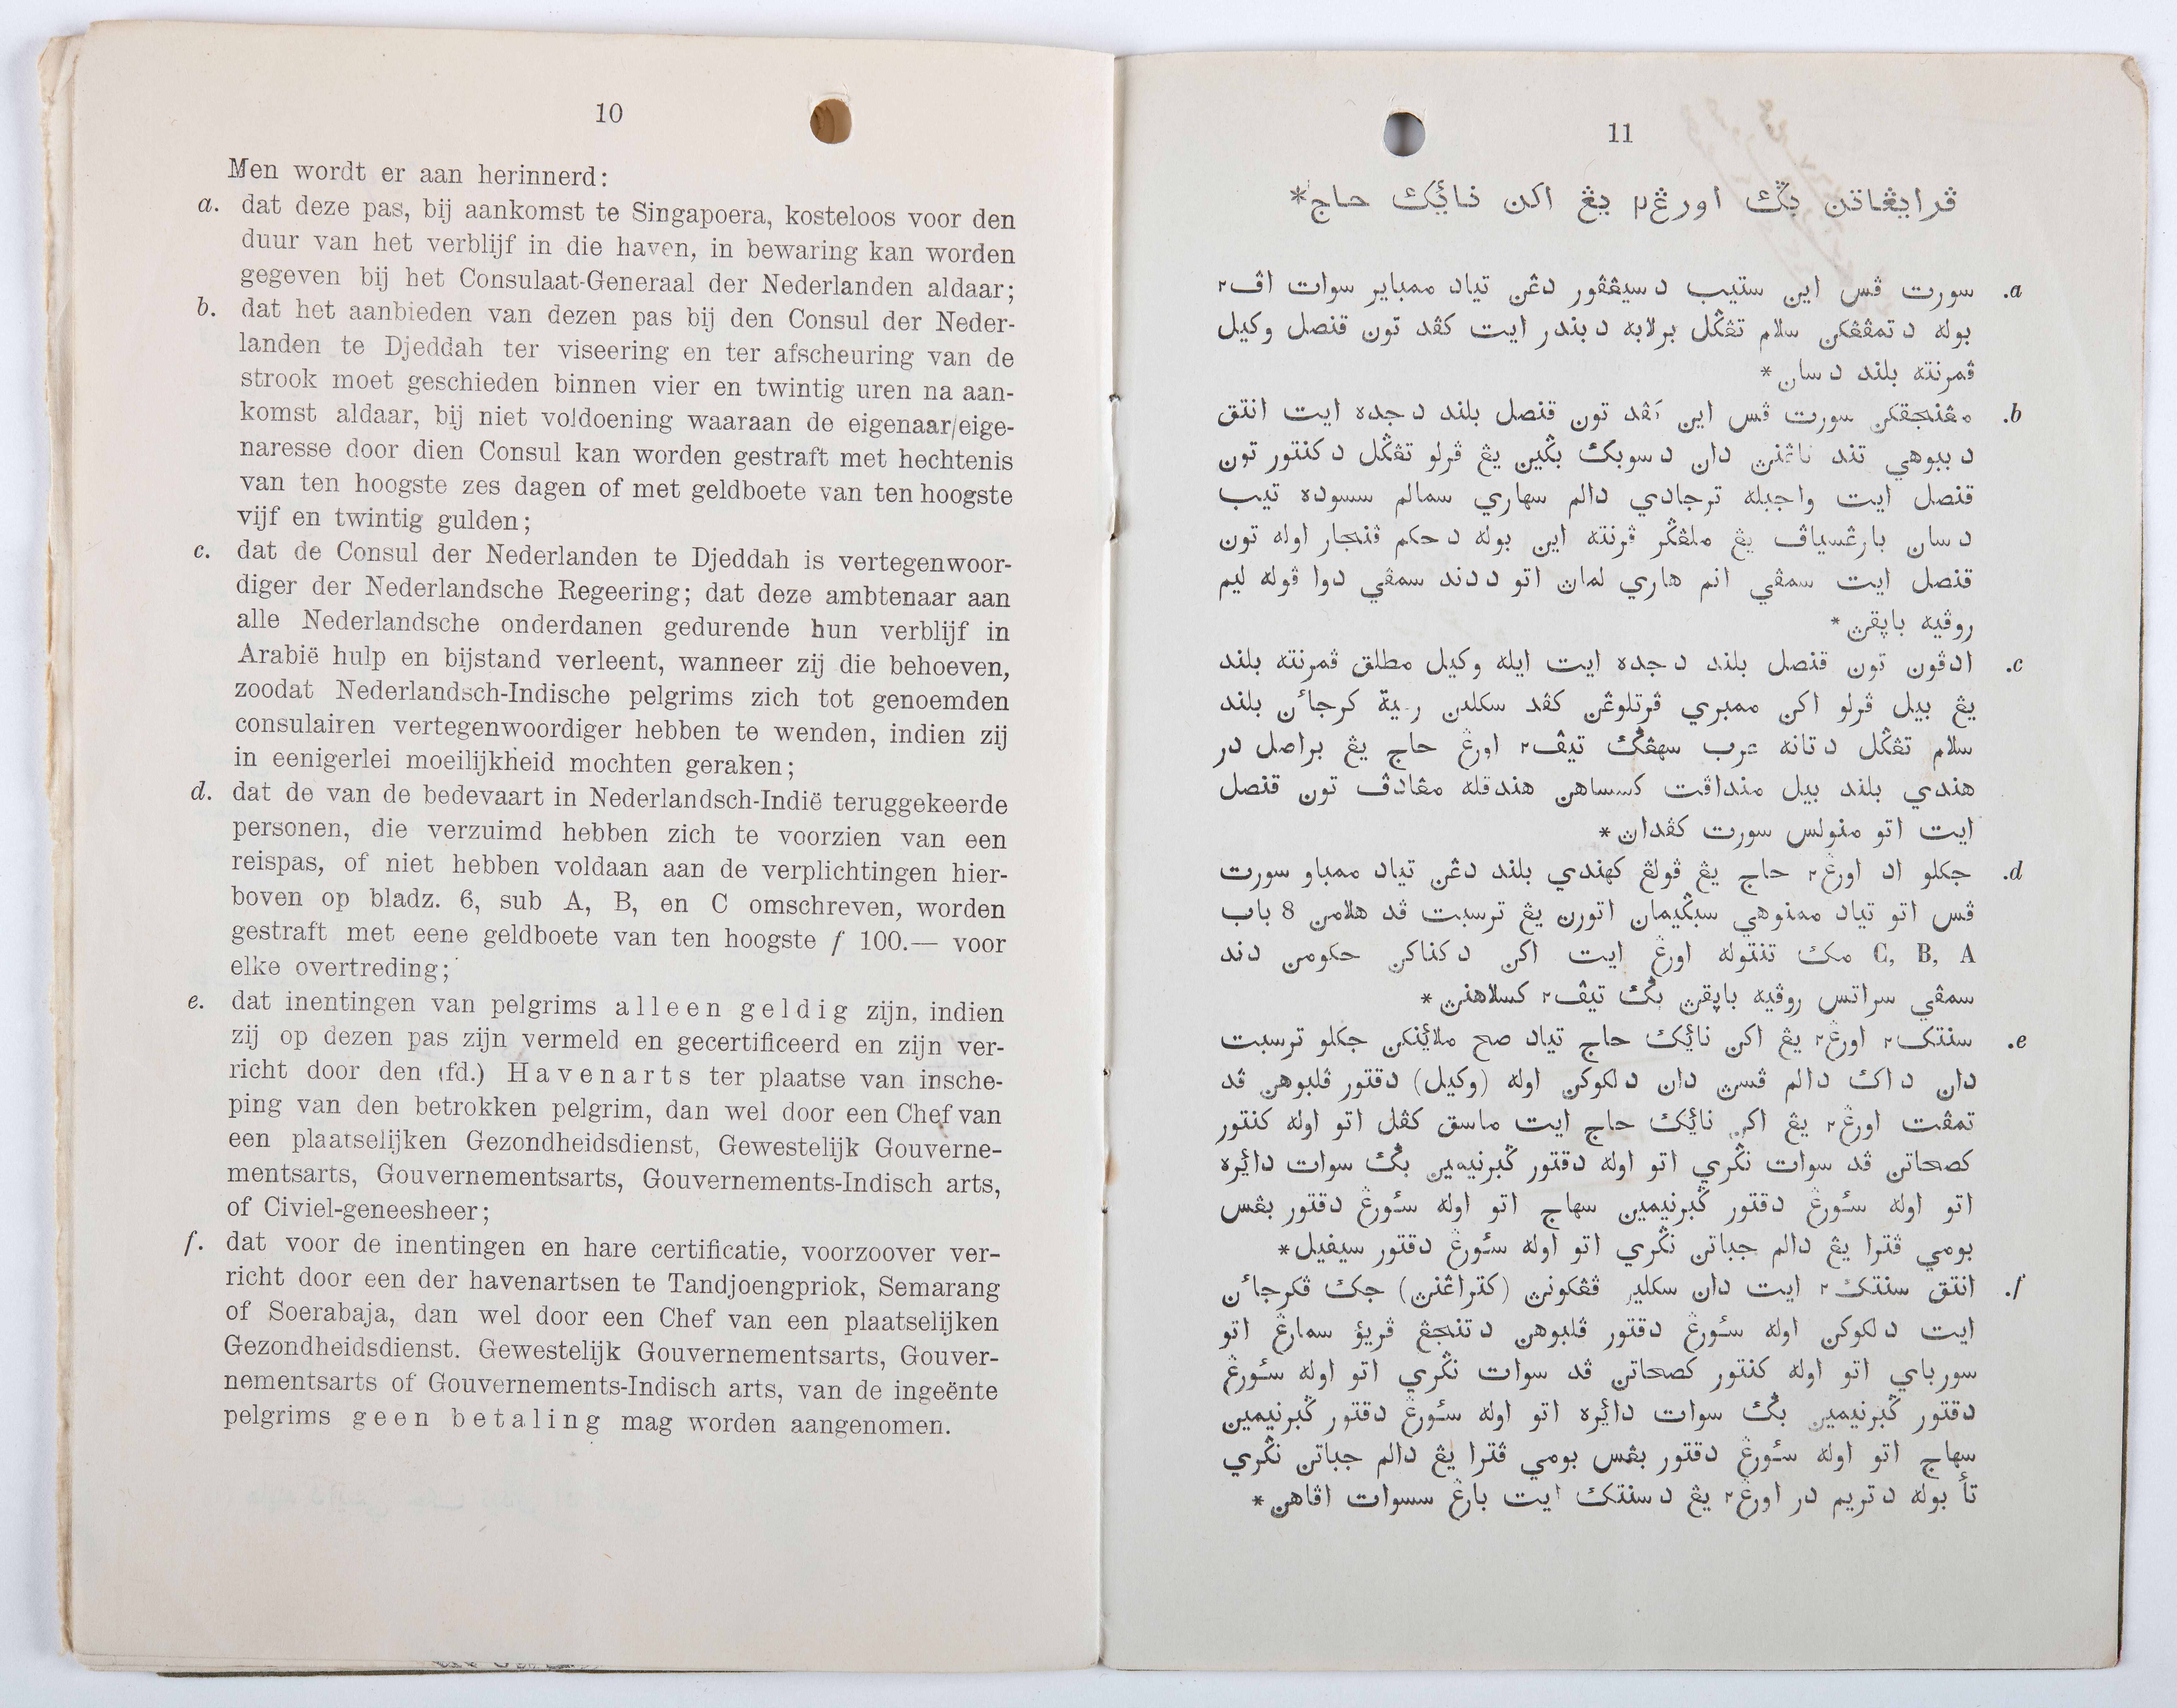 10
Men wordt er aan herinnerd:
a. dat deze pas, bij aankomst te Singapoera, kosteloos voor den
duur van het verblijf in die haven, in bewaring kan worden
gegeven bij het Consulaat-Generaal der Nederlanden aldaar;
b. dat het aanbieden van dezen pas bij den Consul der Neder-
landen te Djeddah ter viseering en ter afscheuring van de
strook moet geschieden binnen vier en twintig uren na aan-
komst aldaar, bij niet voldoening waaraan de eigenaar/eige-
naresse door dien Consul kan worden gestraft met hechtenis
van ten hoogste zes dagen of met geldboete van ten hoogste
vijf en twintig gulden;
c. dat de Consul der Nederlanden te Djeddah is vertegenwoor-
diger der Nederlandsche Regeering; dat deze ambtenaar aan
alle Nederlandsche onderdanen gedurende hun verblijf in
Arabië hulp en bijstand verleent, wanneer zij die behoeven,
zoodat Nederlandsch-Indische pelgrims zich tot genoemden
consulairen vertegenwoordiger hebben te wenden, indien zij
in eenigerlei moeilijkheid mochten geraken;
d. dat de van de bedevaart in Nederlandsch-Indië teruggekeerde
personen, die verzuimd hebben zich te voorzien van een
reispas, of niet hebben voldaan aan de verplichtingen hier-
boven op bladz. 6, sub A, B, en C omschreven, worden
gestraft met eene geldboete van ten hoogste f 100.— voor
elke overtreding;
e. dat inentingen van pelgrims alleen geldig zijn, indien
zij op dezen pas zijn vermeld en gecertificeerd en zijn ver-
richt door den (fd.) Havenarts ter plaatse van insche-
ping van den betrokken pelgrim, dan wel door een Chef van
een plaatselijken Gezondheidsdienst, Gewestelijk Gouverne-
mentsarts, Gouvernementsarts, Gouvernements-Indisch arts,
of Civiel-geneesheer;
f. dat voor de inentingen en hare certificatie, voorzoover ver-
richt door een der havenartsen te Tandjoengpriok, Semarang
of Soerabaja, dan wel door een Chef van een plaatselijken
Gezondheidsdienst. Gewestelijk Gouvernementsarts, Gouver-
nementsarts of Gouvernements-Indisch arts, van de ingeënte
pelgrims geen betaling mag worden aangenomen.
11
ڤرايڠاتن بݢك اورڠ٢ يڠ اكن نائيك حاج*
a. سورت ڤس اين ستيب دسيڠڤور دڠن تياد ممباير سوات اڤ٢
بوله دتمڤڤكن سلام تڠݢل برلابه دبندر ايت كڤد تون قنصل وكيل
ڤمرنته بلند دسان*
b. مڠنجقكن سورت ڤس اين كڤد تون قنصل بلند دجده ايت انتق
دببوهي تند تاڠنن دان دسوبك بݢين يڠ ڤرلو تڠݢل دكنتور تون
قنصل ايت واجبله ترجادي دالم سهاري سمالم سسوده تيب
دسان بارڠسياڤ يڠ ملڠݢر ڤرنته اين بوله دحكم ڤنجار اوله تون
قنصل ايت سمڤي انم هاري لمان اتو ددند سمڤي دوا ڤوله ليم
روڤيه باڽقن*
c. ادڤون تون قنصل بلند دجده ايت ايله وكيل مطلق ڤمرنته بلند
يڠ بيل ڤرلو اكن ممبري ڤرتلوڠن كڤد سكلين رعية كرجائن بلند
سلام تڠݢل دتانه عرب سهڠݢك تيڤ٢ اورڠ حاج يڠ براصل در
هندي بلند بيل منداڤت كسساهن هندقله مڠادڤ تون قنصل
ايت اتو منولس سورت كڤدان*
d. جكلو اد اورڠ٢ حاج يڠ ڤولڠ كهندي بلند دڠن تياد ممباو سورت
ڤس اتو تياد ممنوهي سبݢيمان اتورن يڠ ترسبت ڤد هلامن 8 باب
C, B, A مك تنتوله اورڠ ايت اكن دكناكن حكومن دند
سمڤي سراتس روڤيه باڽقن بݢك تيڤ٢ كسلاهنن*
e. سنتك٢ اورڠ٢ يڠ اكن نائيك حاج تياد صح ملائينكن جكلو ترسبت
دان داك دالم ڤسن دان دلكوكن اوله (وكيل) دقتور ڤلبوهن ڤد
تمڤت اورڠ٢ يڠ اكن نائيك حاج ايت ماسق كڤل اتو اوله كنتور
كصحاتن ڤد سوات نݢري اتو اوله دقتور ݢبرنيمين بݢك سوات دائيره
اتو اوله سئورڠ دقتور ݢبرنيمين سهاج اتو اوله سئورڠ دقتور بڠس
بومي ڤترا يڠ دالم جباتن نݢري اتو اوله سئورڠ دقتور سيفيل*
f. انتق سنتك٢ ايت دان سكلين ڤڠكونن (كتراڠنن) جك ڤكرجائن
ايت دلكوكن اوله سئورڠ دقتور ڤلبوهن دتنجڠ ڤريؤ سمارڠ اتو
سورباي اتو اوله كنتور كصحاتن ڤد سوات نݢري اتو اوله سئورڠ
دقتور ݢبرنيمين بݢك سوات دائيره اتو اوله سئورڠ دقتور ݢبرنيمين
سهاج اتو اوله سئورڠ دقتور بڠس بومي ڤترا يڠ دالم جباتن نݢري
تأ بوله دتريم در اورڠ٢ يڠ دسنتك ايت بارڠ سسوات اڤاهن*